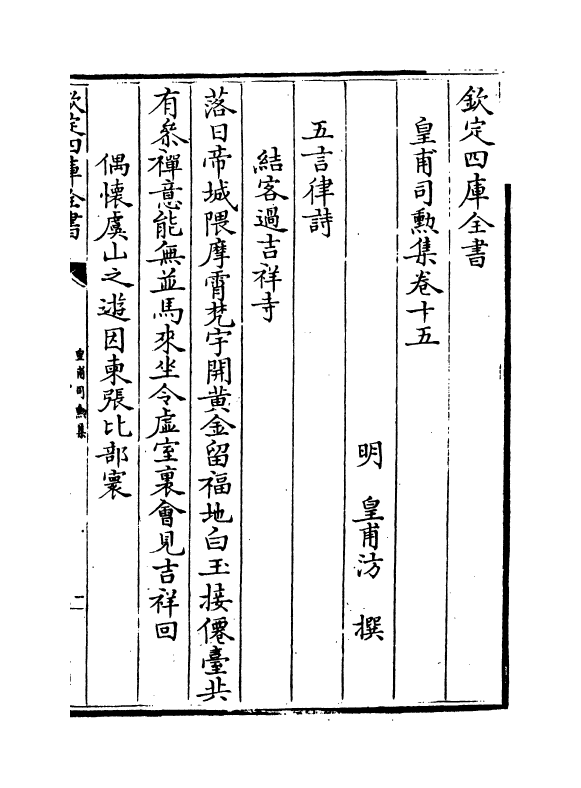 欽定四庫全書
皇甫司勲集卷十五
明 皇甫汸 撰
五言律詩
結客過吉祥寺
落日帝城隈摩霄梵宇開黄金留福地白玉接僊臺共
有叅禪意能無並馬來坐令虛室裏㑹見吉祥回
偶懷虞山之遊因柬張比部寰
欽定四庫全書
皇甫司勲集